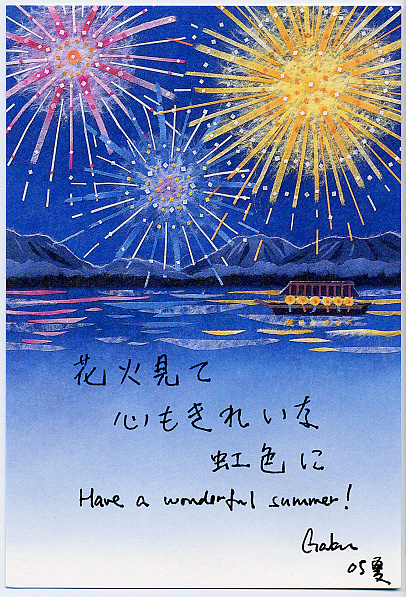 花火見て
心もきれいな
虹色に
Have a wonderful summer!
Gaku
05夏